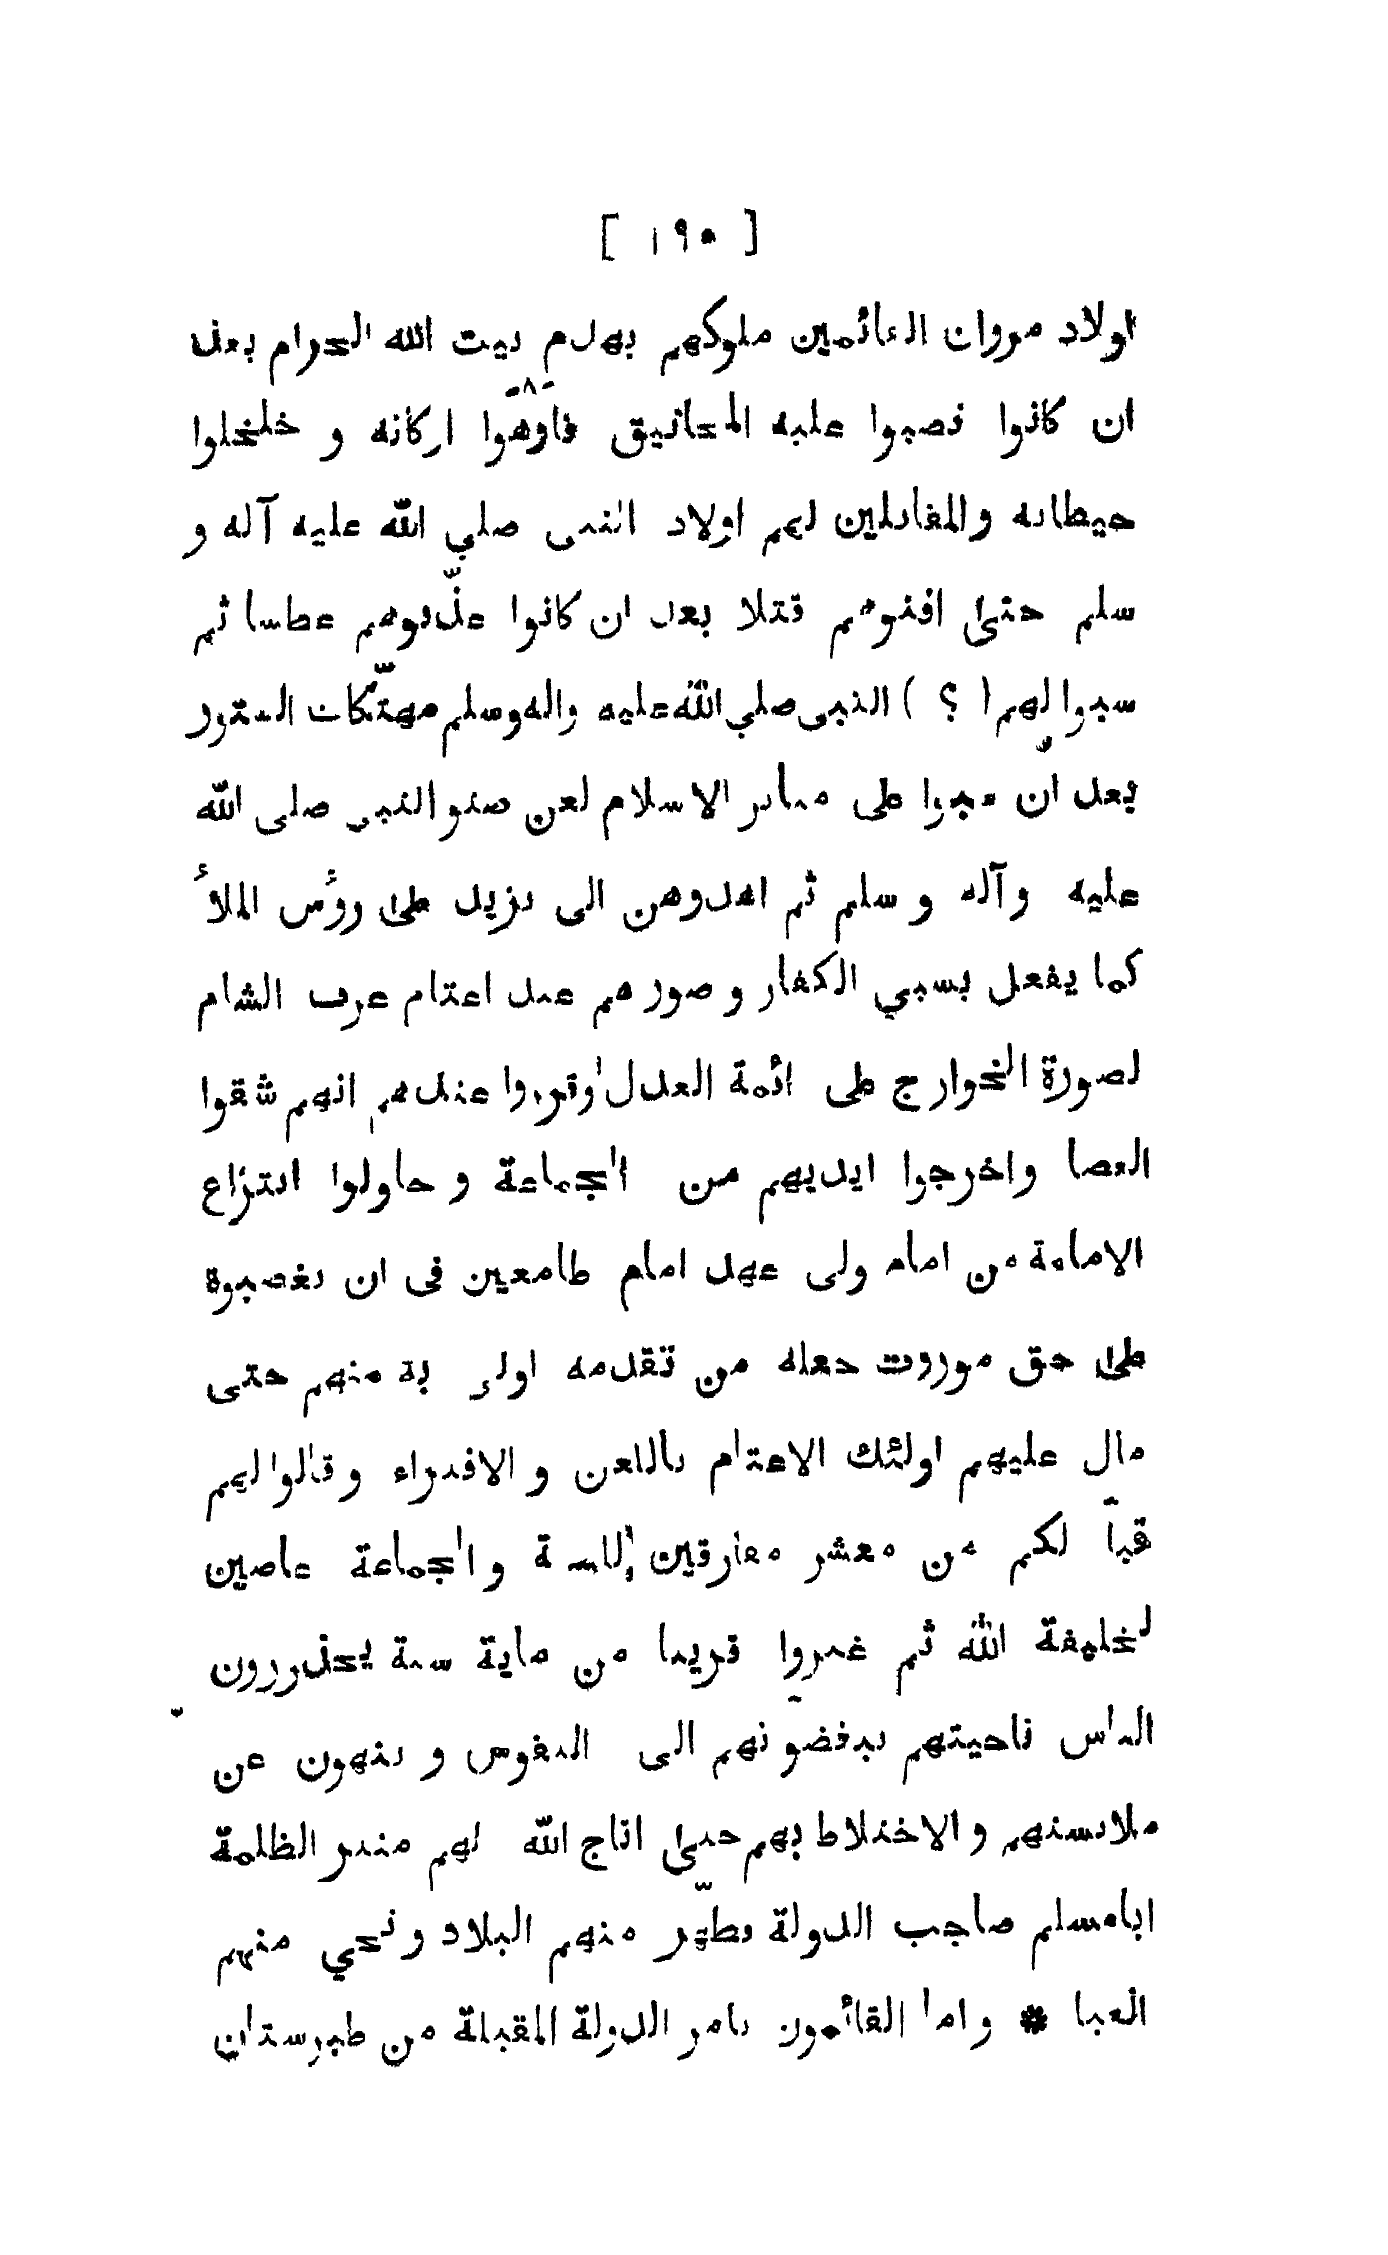 [ ١٩٥ ]
اولاد مروان القائمين ملوكهم بهدم بيت الله الحرام بعد
ان كانوا نصبوا عليه المجانيق فاوهوا اركانه و خلخلوا
حيطانه والمقاتلين لهم اولاد النبى صلي الله عليه آله و
سلم حتى افنوهم قتلا بعد ان كانوا عذّبوهم عطشا ثم
سبوا لهم ( ؟ ) النبى صلي الله عليه واله وسلم مهتّكات الستور
بعد ان سبوا على منابر الاسلام لعن صنو النبى صلى الله
عليه وآله و سلم ثم اهدوهن الى يزيد على روؤس الملاٴ
كما يفعل بسبي الكفار و صورهم عند اغتام عرب الشام
لصورة الخوارج على ائمة العدل وقرروا عندهم انهم شقوا
العصا واخرجوا ايديهم من الجماعة و حاولوا انتزاع
الامامة من امام ولى عهد امام طامعين فى ان يغصبوة
على حق موروث جعله من تقدمه اولى بة منهم حتى
مال عليهم اولئك الاغتام باللعن و الافتراء و قالوا لهم
قبا لكم من معشر مفارقين للسنة و الجماعة عاصين
لخليفة الله ثم غبروا قريبا من ماية سنة يحذررون
الناس ناحيتهم يبغضونهم الى النفوس و ينهون عن
ملابستهم و الاختلاط بهم حتى اتاج الله لهم مبير الظلمة
ابامسلم صاحب الدولة فطهّر منهم البلاد و نحي منهم
العبا * و اما القائمون بامر الدولة المقبلة من طبرستان